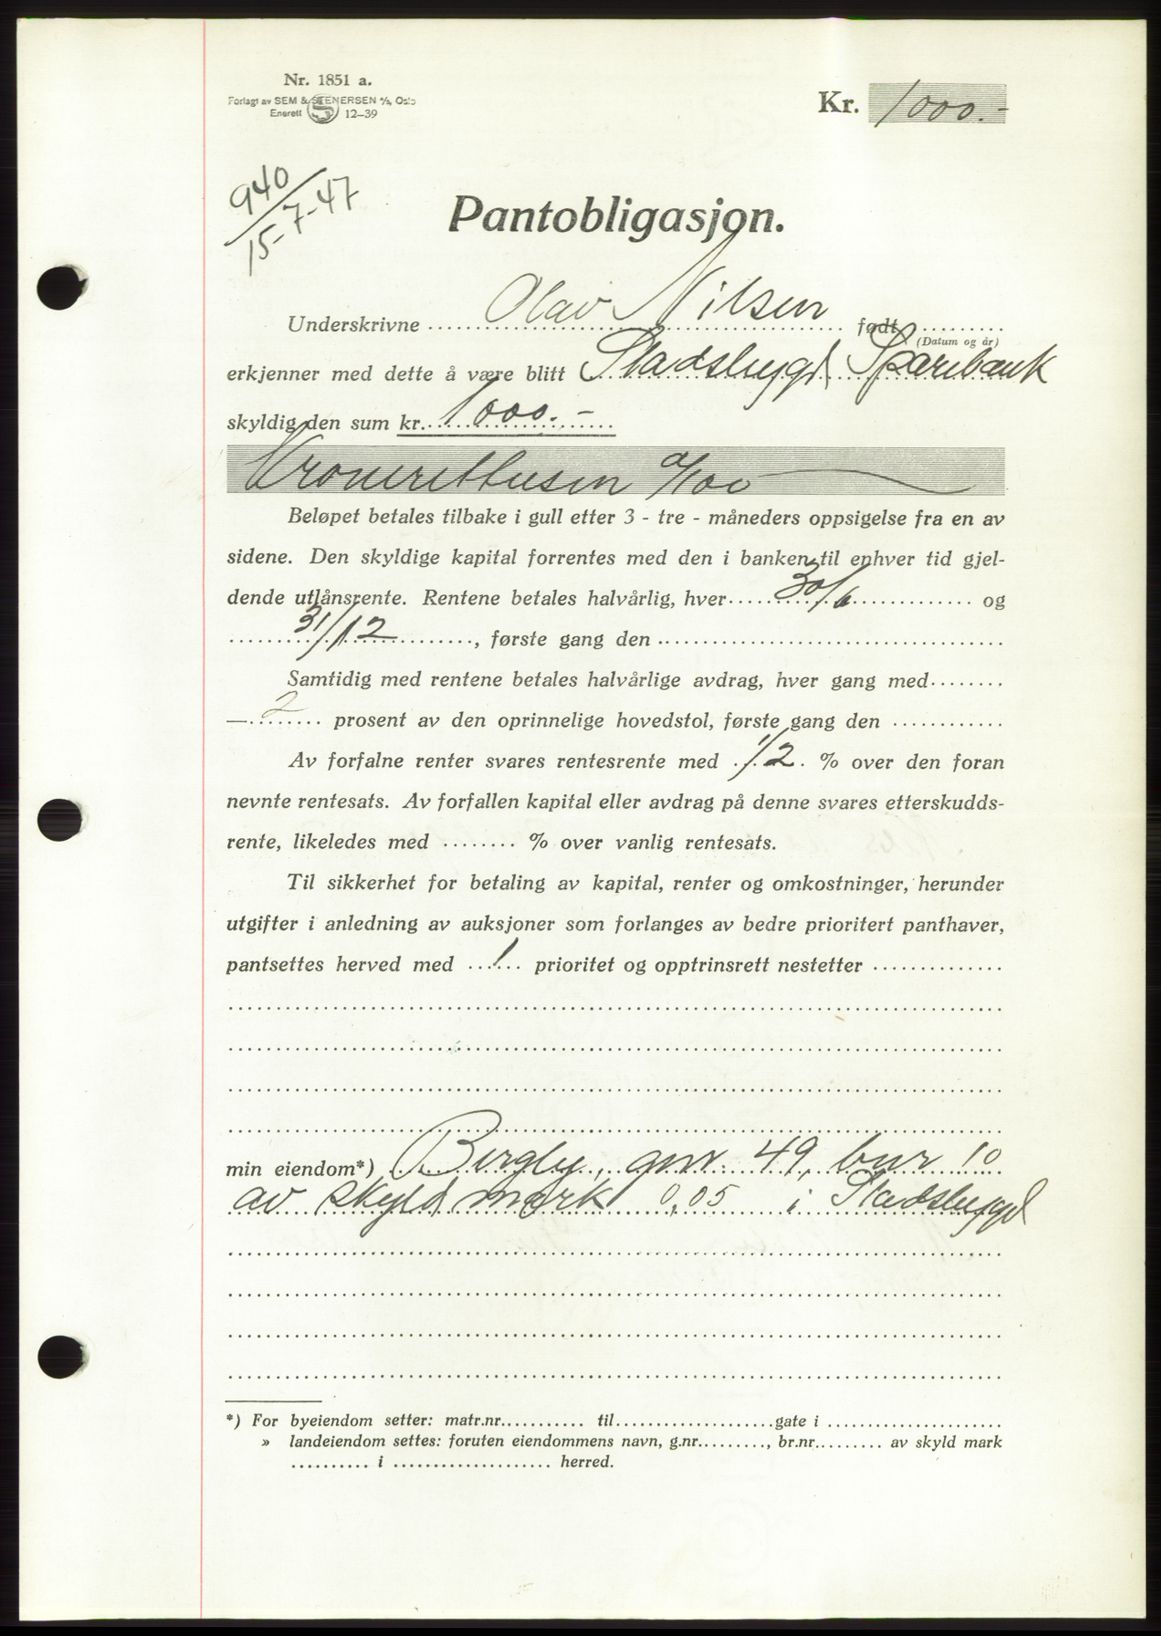 Nr. 1851 a.
Forlagt av SEM & STENERSEN A/S, Oslo
Enerett S 12–39
Kr. 1000.-
940
15-7-47
Pantobligasjon.
Underskrivne Olav Nilsen født
(Datum og år)
erkjenner med dette å være blitt Stadsbygd Sparebank
skyldig den sum kr. 1000.-
Kronerettusen 0/100
Beløpet betales tilbake i gull etter 3 - tre - måneders oppsigelse fra en av
sidene. Den skyldige kapital forrentes med den i banken til enhver tid gjel-
dende utlånsrente. Rentene betales halvårlig, hver 30/6 og
31/12, første gang den
Samtidig med rentene betales halvårlige avdrag, hver gang med
— 2 prosent av den oprinnelige hovedstol, første gang den
Av forfalne renter svares rentesrente med 1/2 % over den foran
nevnte rentesats. Av forfallen kapital eller avdrag på denne svares etterskudds-
rente, likeledes med ........ % over vanlig rentesats.
Til sikkerhet for betaling av kapital, renter og omkostninger, herunder
utgifter i anledning av auksjoner som forlanges av bedre prioritert panthaver,
pantsettes herved med 1 prioritet og opptrinsrett nestetter
min eiendom*) Bergly, gnr. 49, bnr 10
av skyld mark 0,05 i Stadsbygd
*) For byeiendom setter: matr.nr........... til....................gate i ......................
» landeiendom settes: foruten eiendommens navn, g.nr........., br.nr......... av skyld mark
.......... i .................... herred.